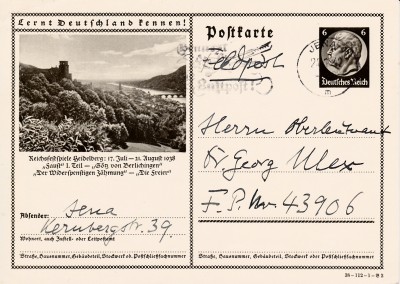 Lernt Deutschland kennen!
Reichsfestspiele Heidelberg: 17. Juli – 21. August 1938
„Faust“ 1. Teil — „Götz von Berlichingen“
„Der Widerspenstigen Zähmung“ — „Die Freier“
Absender: Jena
Kernbergstr. 39.
Wohnort, auch Zustell- oder Leitpostamt
Straße, Hausnummer, Gebäudeteil, Stockwerk od. Postschließfachnummer
Postkarte
Feldpost
Luftpost!
6 6
Deutsches Reich
Herrn Oberleutnant
Dr. Georg Ulex
F.P.Nr. 43906
Straße, Hausnummer, Gebäudeteil, Stockwerk od. Postschließfachnummer